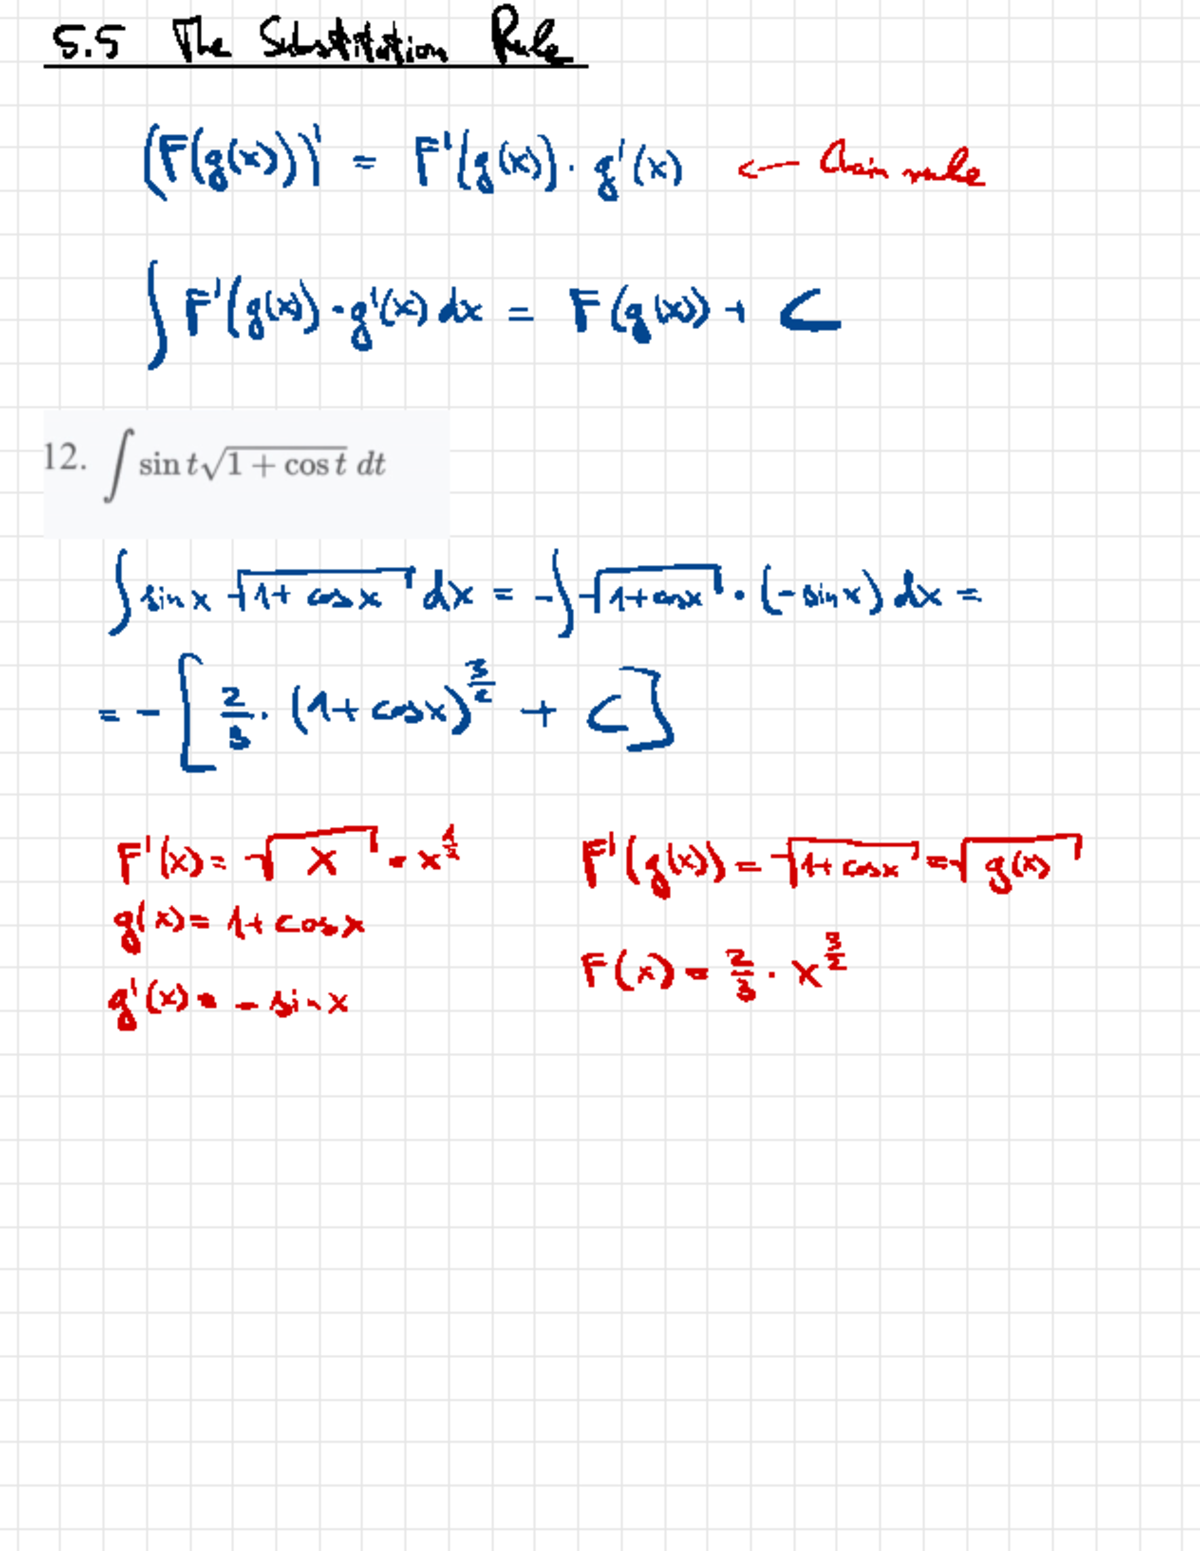 5.5 The Substitution Rule
(F(g(x)))' = F'(g(x)) · g'(x) ← Chain rule
∫ F'(g(x)) · g'(x) dx = F(g(x)) + C
12. ∫ sin t√(1 + cos t) dt
∫ sin x √(1 + cos x) dx = -∫ √(1 + cos x) · (- sin x) dx =
= - [ 2/3 · (1 + cos x)^(3/2) + C ]
F'(x) = √x = x^(1/2) F'(g(x)) = √(1 + cos x) = √g(x)
g(x) = 1 + cos x
F(x) = 2/3 · x^(3/2)
g'(x) = - sin x